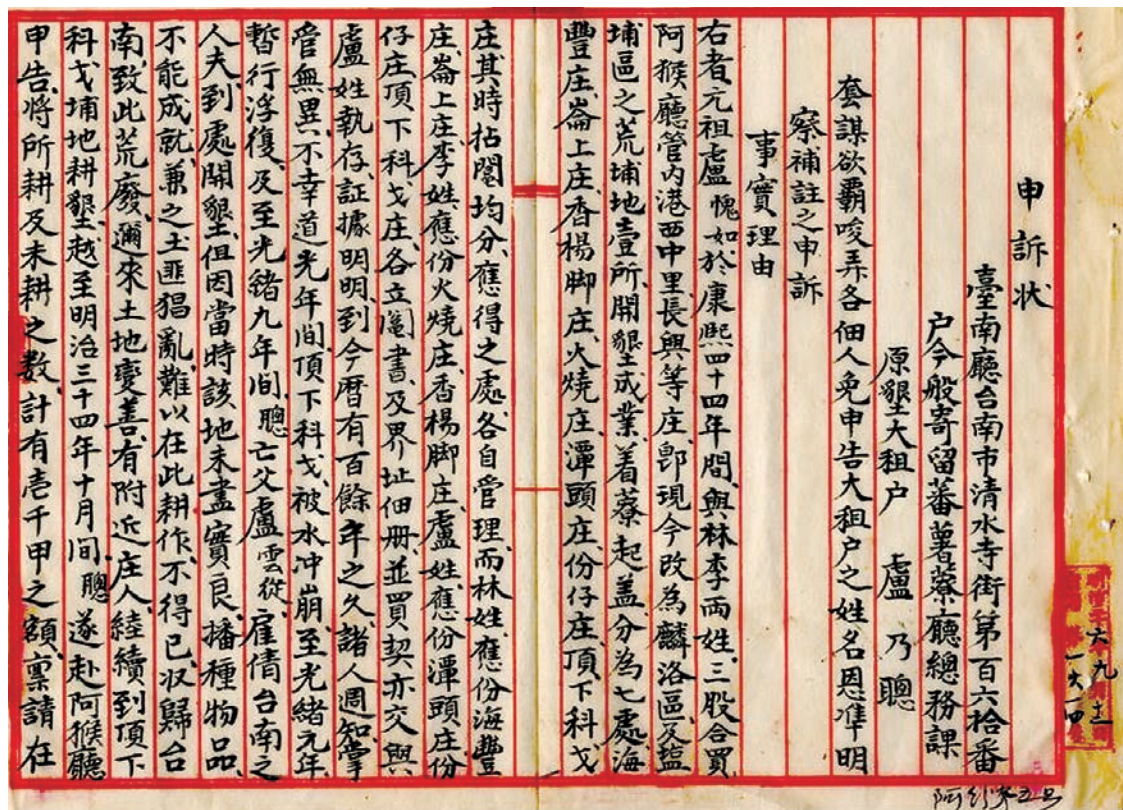 申訴状
臺南廳台南市清水寺街第百六拾番
户今般寄留蕃薯藔廳總務課
原墾大租户　盧乃聰
套謀欲霸唆弄各佃人免申告大租户之姓名恩准明
察補註之申訴
事實理由
右者元祖盧愧如於康熙四十四年間、與林李兩姓、三股合買
阿猴廳管内港西中里長興等庄、即現今改為麟洛區及塩
埔區之荒埔地壹所、開墾成業、着藔起盖分為七處、海
豐庄、崙上庄、香楊脚庄、火燒庄、潭頭庄、份仔庄、頂下科戈
庄、其時拈鬮均分、應得之處、各自管理、而林姓應份海豐
庄、崙上庄、李姓應份火燒庄、香楊脚庄、盧姓應份潭頭庄、份
仔庄、頂下科戈庄、各立鬮書、及界址佃册、並買契亦交與
盧姓執存、証據明明、到今曆有百餘年之久、諸人週知、掌
管無異、不幸道光年間、頂下科戈、被水冲崩、至光緒元年、
暫行浮復、及至光緒九年間、聰亡父盧雲從、雇倩台南之
人夫、到處開墾、但因當時該地未盡實良、播種物品、
不能成就、兼之土匪猖亂、難以在此耕作、不得已、収歸台
南、致此荒廢、邇來土地變善、有附近庄人、續續到頂下
科戈埔地耕墾、越至明治三十四年十月間、聰遂赴阿猴廳
申告、將所耕及未耕之数、計有壱千甲之額、稟請在